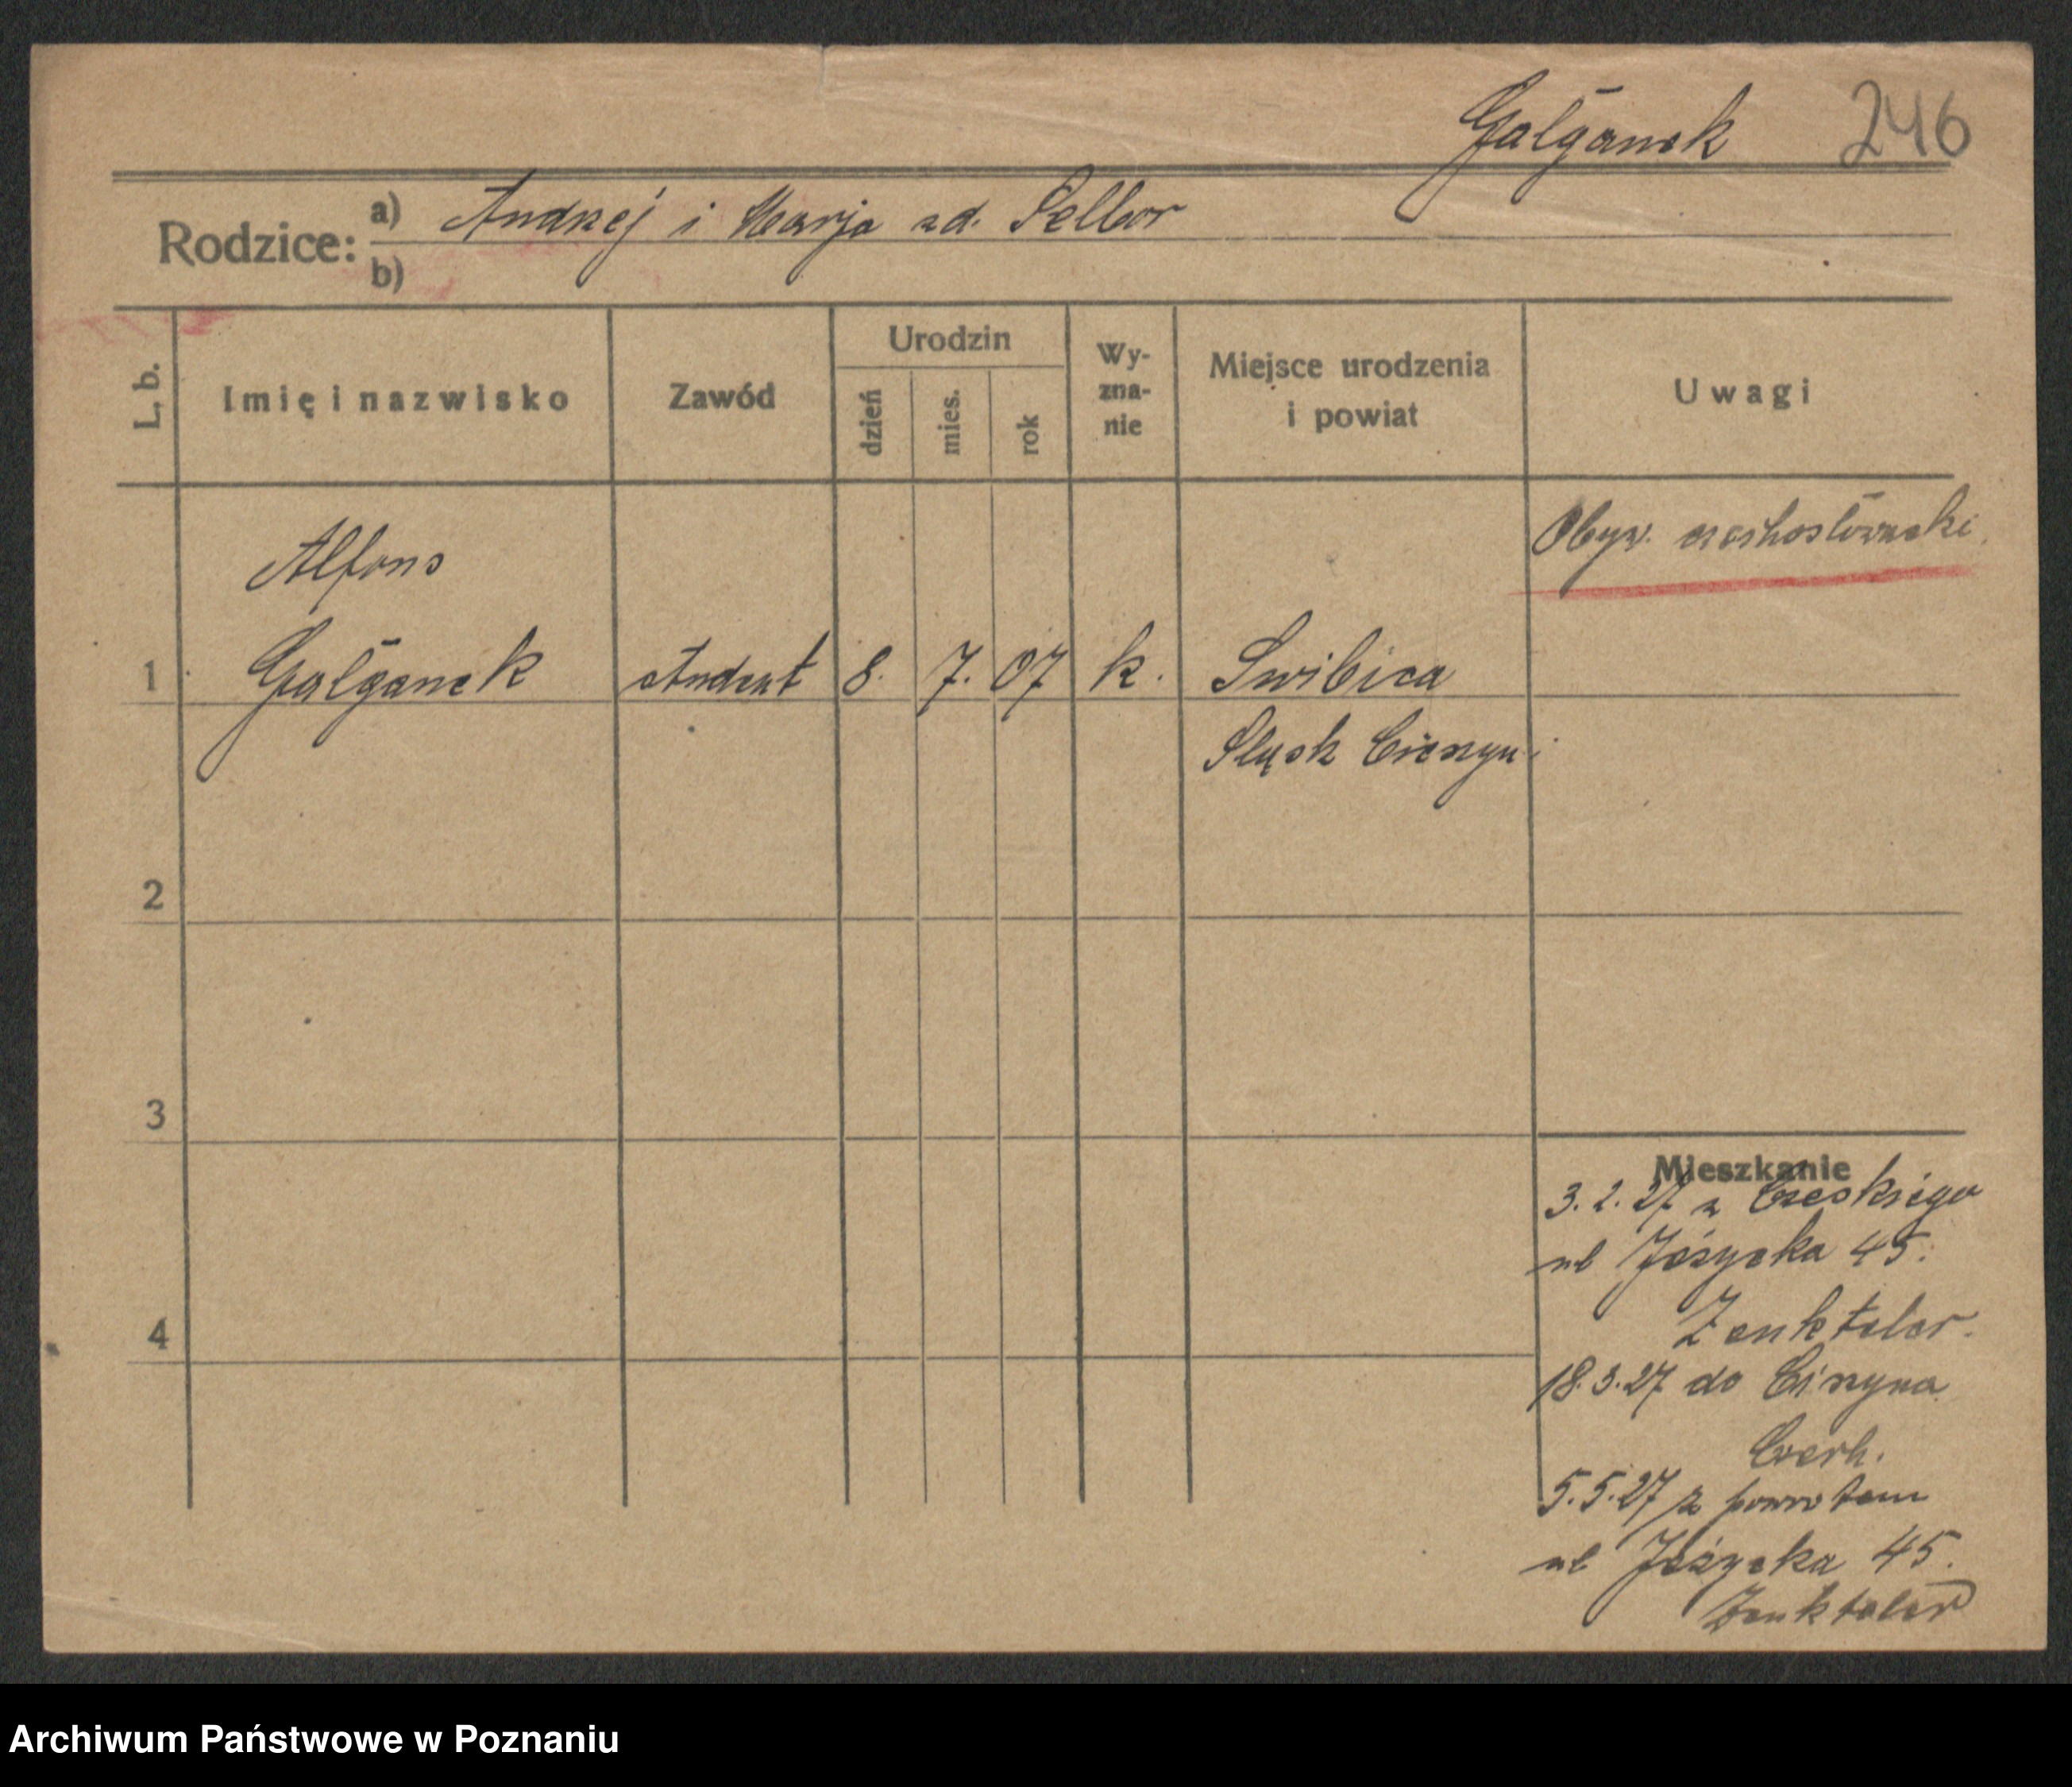 Gałganek 246
Rodzice: a) Andrzej i Marja zd. Pellar
b)
L. b. Imię i nazwisko Zawód Urodzin dzień mies. rok Wy-zna-nie Miejsce urodzenia i powiat Uwagi
Obyw. czechosłowacki.
Alfons
1 Gałganek student 8. 7. 07 k. Świbica
Śląsk Cieszyń.
2
3
4
Mieszkanie
3. 2. 27 z Czeskiego
ul Jeżycka 45.
Zenkteler.
18.3.27 do Ciszyna
Czech.
5.5.27 z powrotem
ul Jeżycka 45.
Zenkteler
Archiwum Państwowe w Poznaniu